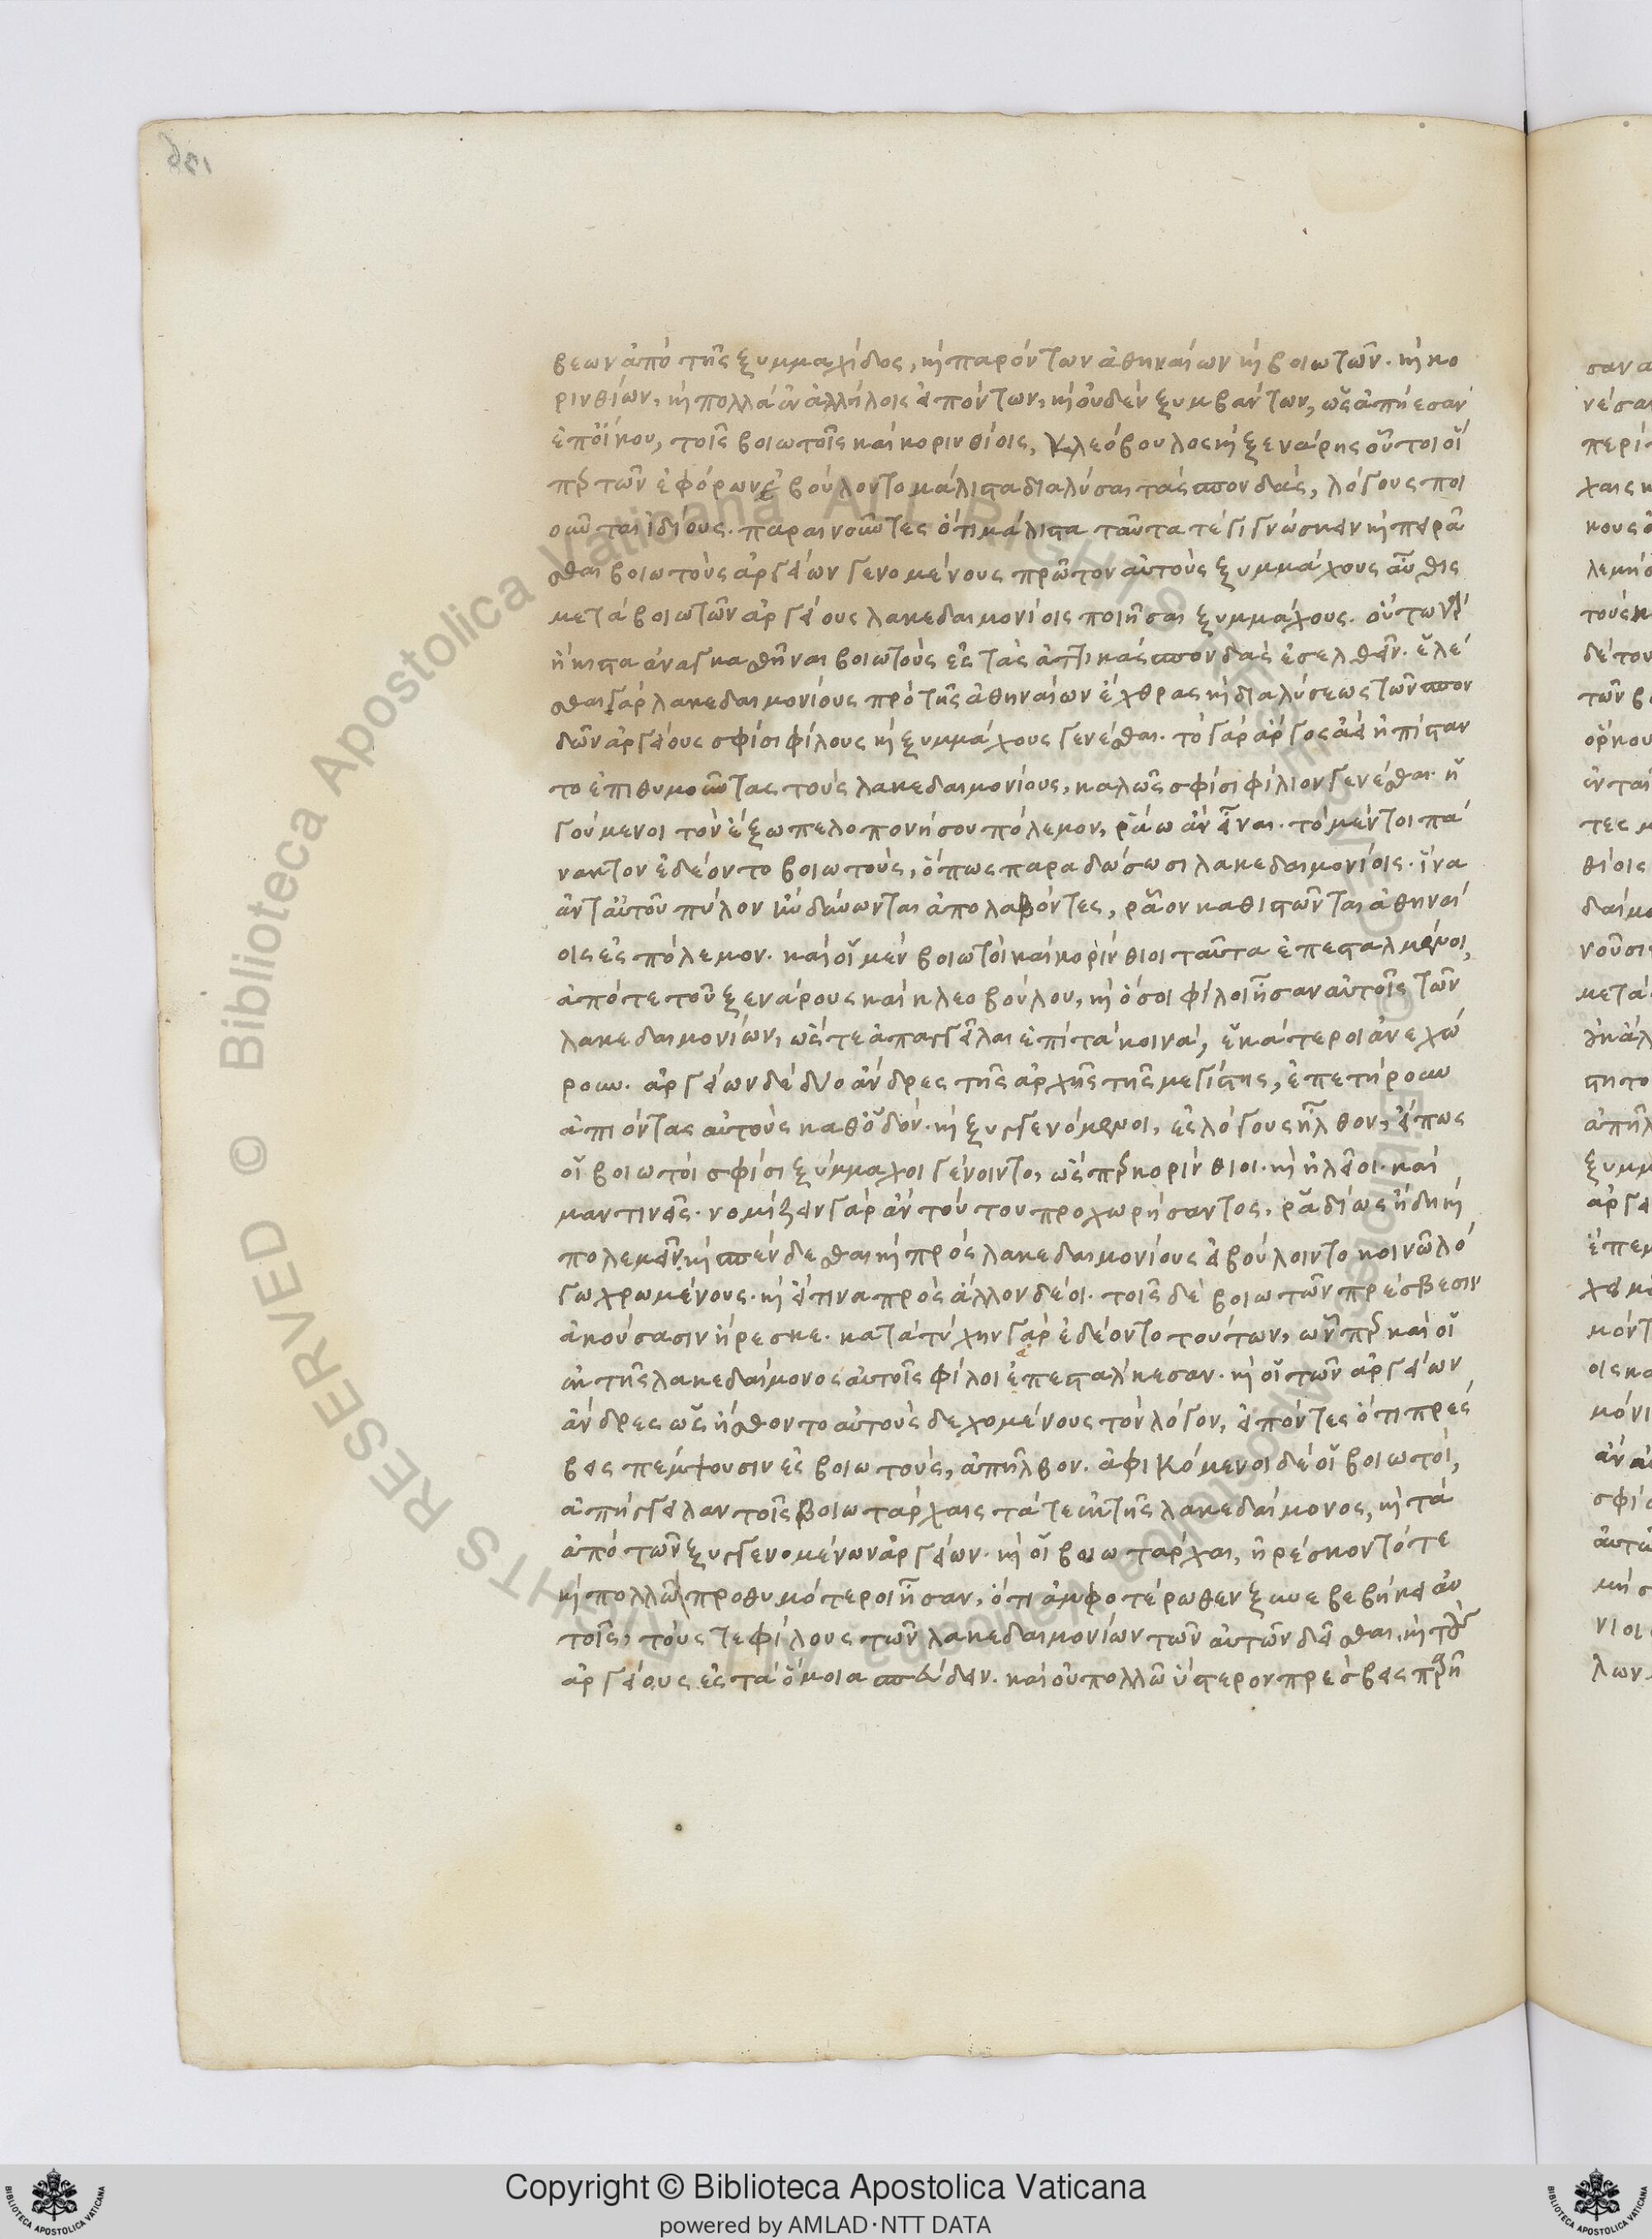 βεων ἀπὸ τῆς ξυμμαχίδος, κὴ παρόντων ἀθηναίων κὴ βοιωτῶν· κὴ κο
ρινθίων, κὴ πολλὰ ἐν ἀλλήλοις εἰπόντων, κὴ οὐδὲν ξυμβάντων, ὡς ἀπήεσαν
ἐπ' οἴκου, τοῖς βοιωτοῖς καὶ κορινθίοις, κλεόβουλος κὴ ξενάρης οὗτοι οἵ
περ τῶν ἐφόρων ἐβούλοντο μάλιστα διαλῦσαι τὰς σπονδὰς, λόγους ποι
οῦνται ἰδίους. παραινοῦντες ὅτι μάλιστα ταῦτά τε γιγνώσκειν κὴ πειρᾶ
σθαι βοιωτοὺς ἀργείων γενομένους πρῶτον αὐτοὺς ξυμμάχους αὖθις
μετὰ βοιωτῶν ἀργείους λακεδαιμονίοις ποιῆσαι ξυμμάχους. οὕτω γὰρ
ἥκιστα ἀναγκασθῆναι βοιωτοὺς ἐς τὰς ἀττικὰς σπονδὰς ἐσελθεῖν. ἑλέ
σθαι γὰρ λακεδαιμονίους πρὸ τῆς ἀθηναίων ἔχθρας κὴ διαλύσεως τῶν σπον
δῶν ἀργείους σφίσι φίλους κὴ ξυμμάχους γενέσθαι. τὸ γὰρ ἄργος ἀεὶ ἠπίσταν
το ἐπιθυμοῦντας τοὺς λακεδαιμονίους, καλῶς σφίσι φίλιον γενέσθαι· ἡ
γούμενοι τὸν ἔξω πελοποννήσου πόλεμον, ῥάω ἂν εἶναι. τὸ μέντοι πά
νακτον ἐδέοντο βοιωτοὺς, ὅπως παραδώσωσι λακεδαιμονίοις· ἵνα
ἀντ' αὐτοῦ πύλον ἢν δύνωνται ἀπολαβόντες, ῥᾷον καθιστῶνται ἀθηναί
οις ἐς πόλεμον. καὶ οἱ μὲν βοιωτοὶ καὶ κορίνθιοι ταῦτα ἐπεσταλμένοι,
ἀπό τε τοῦ ξενάρους καὶ κλεοβούλου, κὴ ὅσοι φίλοι ἦσαν αὐτοῖς τῶν
λακεδαιμονίων, ὥστε ἀπαγγεῖλαι ἐπὶ τὰ κοινὰ, ἑκάτεροι ἀνεχώ
ρουν. ἀργείων δὲ δύο ἄνδρες τῆς ἀρχῆς τῆς μεγίστης, ἐπετήρουν
ἀπιόντας αὐτοὺς καθ' ὁδόν. κὴ ξυγγενόμενοι, ἐς λόγους ἦλθον, εἴ πως
οἱ βοιωτοὶ σφίσι ξύμμαχοι γένοιντο, ὥσπερ κορίνθιοι· κὴ ἠλεῖοι· καὶ
μαντινεῖς· νομίζειν γὰρ ἂν τούτου προχωρήσαντος, ῥᾳδίως ἤδη κὴ
πολεμεῖν κὴ σπένδεσθαι κὴ πρὸς λακεδαιμονίους εἰ βούλοιντο κοινῷ λό
γω χρωμένους· κὴ εἴ τινα πρὸς ἄλλον δέοι. τοῖς δὲ βοιωτῶν πρέσβεσιν
ἀκούσασιν ἤρεσκε. κατὰ τύχην γὰρ ἐδέοντο τούτων, ὧνπερ καὶ οἱ
ἐκ τῆς λακεδαίμονος αὐτοῖς φίλοι ἐπεστάλκεσαν. κὴ οἱ τῶν ἀργείων
ἄνδρες ὡς ᾔσθοντο αὐτοὺς δεχομένους τὸν λόγον, εἰπόντες ὅτι πρέσ
βεις πέμψουσιν ἐς βοιωτοὺς, ἀπῆλθον. ἀφικόμενοι δὲ οἱ βοιωτοὶ,
ἀπήγγειλαν τοῖς βοιωτάρχαις τά τε ἐκ τῆς λακεδαίμονος, κὴ τὰ
ἀπὸ τῶν ξυγγενομένων ἀργείων. κὴ οἱ βοιωτάρχαι, ἠρέσκοντό τε
κὴ πολλῶ προθυμότεροι ἦσαν, ὅτι ἀμφοτέρωθεν ξυνεβεβήκει αὐ
τοῖς, τούς τε φίλους τῶν λακεδαιμονίων τῶν αὐτῶν δεῖσθαι, κὴ τοὺς
ἀργείους ἐς τὰ ὅμοια σπεύδειν. καὶ οὐ πολλῶ ὕστερον πρέσβεις παρῆ
Copyright © Biblioteca Apostolica Vaticana
powered by AMLAD·NTT DATA